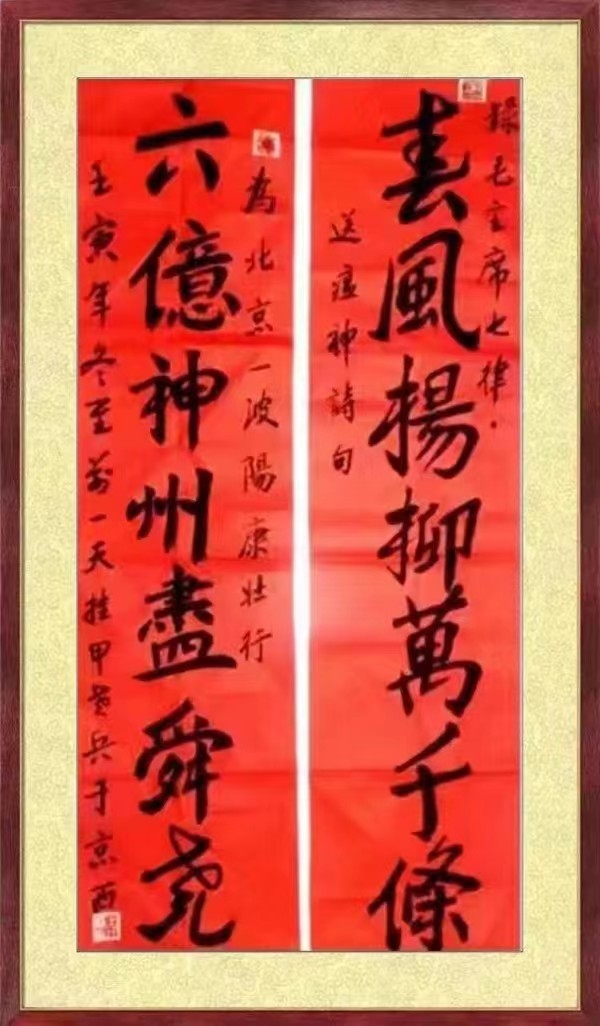 録毛主席七律·
春風楊柳萬千條
送瘟神詩句
為北京一波陽康壮行
六億神州盡舜尧
壬寅年冬至前一天挂甲老兵于京西